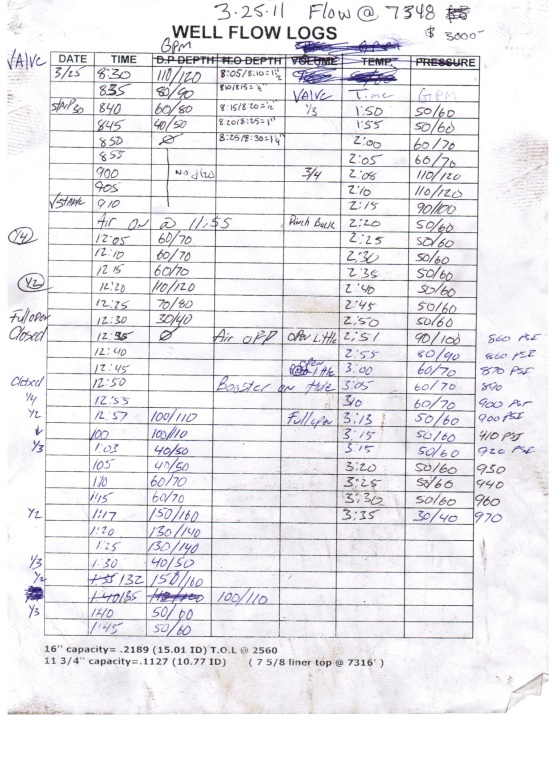 3.25.11 Flow @ 7348
$ 3000-
WELL FLOW LOGS
GPM
VALVE DATE TIME D.P DEPTH H.O DEPTH VOLUME TEMP PRESSURE
3/25 8:30 110/120 8:05/8:10=1½"
835 80/90 VALVE Time GPM
840 60/80 8:15/8:20=½" 1/3 1:50 50/60
845 40/50 8:20/8:25=1" 1:55 50/60
850 Ø 8:25/8:30=1¼" 2:00 60/70
855 2:05 60/70
900 3/4 2:08 110/120
905 2:10 110/120
910 2:15 90/100
Air ON @ 11:55 Pinch Back 2:20 50/60
1/4 12:05 60/70 2:25 50/60
12:10 60/70 2:30 50/60
12 15 60/70 2:35 50/60
1/2 12:20 110/120 2:40 50/60
12:25 70/80 2:45 50/60
Full open 12:30 30/40 2:50 50/60
Closed 12:35 Ø Air OFF open Little 2:51 90/100 860 PSI
12:40 2:55 80/90 860 PSI
12:45 open Little 3:00 60/70 870 PSI
Closed 12:50 Booster on Hole 3:05 60/70 890
1/4 12:55 310 60/70 900 PSI
1/2 12:57 100/110 Full open 3:13 50/60 900 PSI
↓ 100 100/110 3:15 50/60 910 PSI
1/3 1:03 40/50 3:15 50/60 920 PSI
105 40/50 3:20 50/60 930
110 60/70 3:25 50/60 940
1:15 60/70 3:30 50/60 960
1/2 1:17 150/160 3:35 30/40 970
1:20 130/140
1:25 130/140
1/3 1:30 40/50
1/2 1:35 132 150/160
1:40 135 100/110
1/3 1:40 50/60
1:45 50/60
16" capacity= .2189 (15.01 ID) T.O.L @ 2560
11 3/4" capacity=.1127 (10.77 ID) ( 7 5/8 liner top @ 7316' )